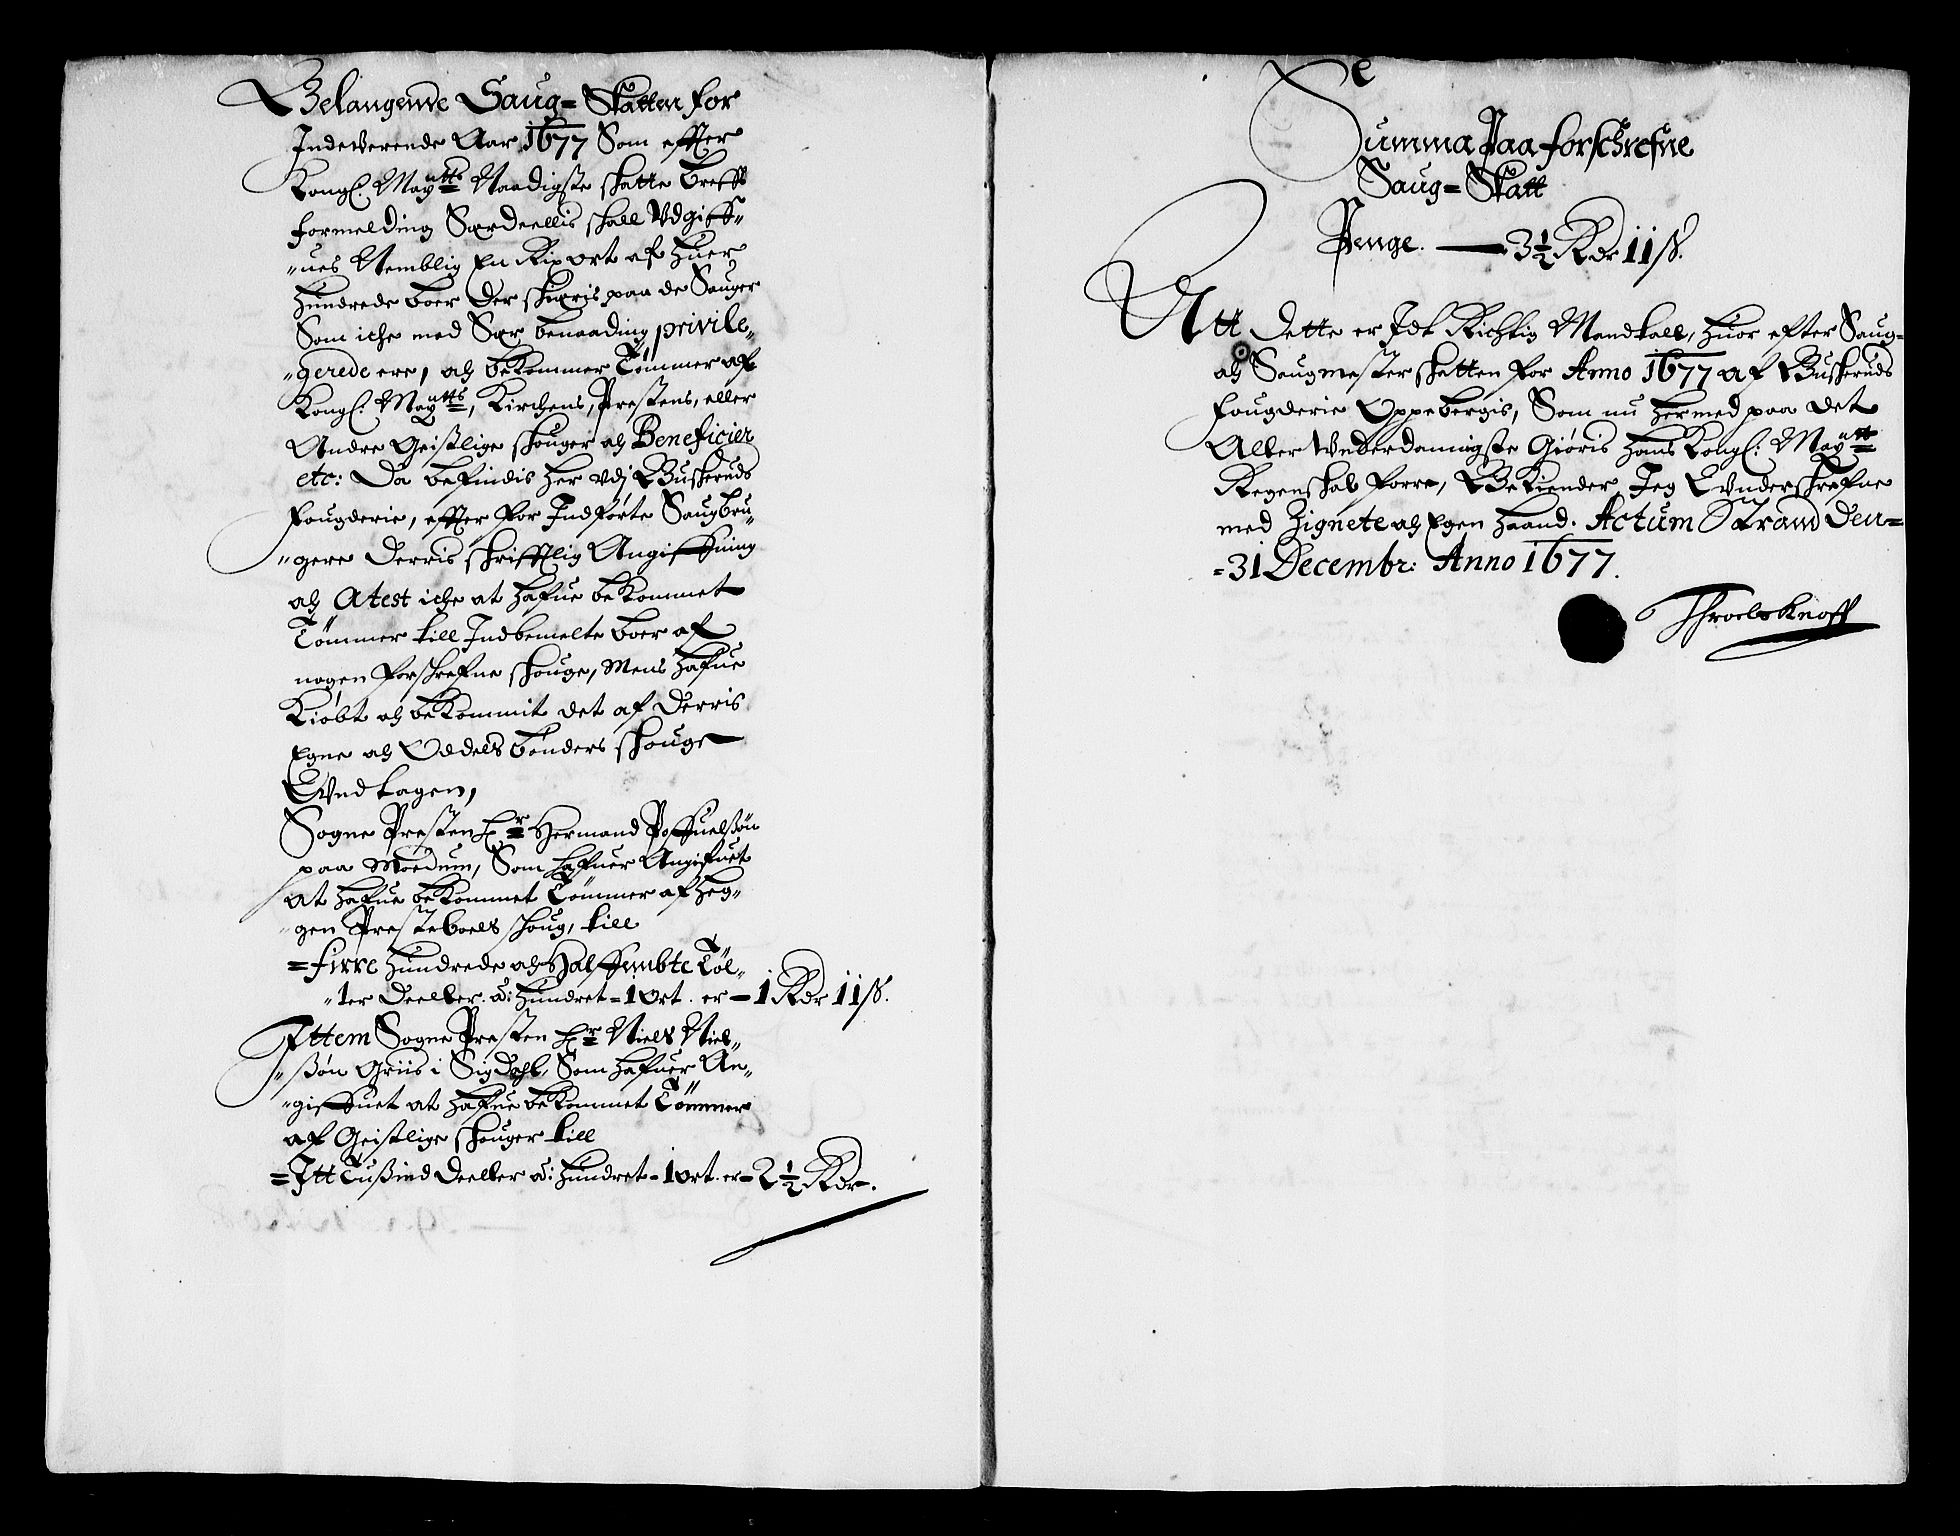 Belangende Saug= Skatten for
Indeverende Aar 1677 Som effter
Kongl: May:tts Naadigste skatte breffs
formelding Særdeellis skall Vdgiff„
„ues Nemblig En Rix ort af huer
hundrede boer der skæris paa de Sauger
Som iche med Sær benaading privile„
„gerede ere, och bekommer Tømmer af
Kongl: May:tts, Kirchens, Prestens, eller
Andre Geistlige skouger och Beneficier
etc: Da befindis her vdj Buskeruds
fougderie, effter for Indførte Saugbru„
„gere derris skrifftlig Angiffning
och Atest iche at hafue bekommet
Tømmer till Indbemelte boer af
nogen forskrefne skouge, Mens hafue
Kiøbt och bekommit det af derris
Egne och Oddels bønders skouge
Vndtagen,
Sogne Presten Hr Hermand Poffuelsøn
paa Moedum, Som hafuer Angifuet
At hafue bekommet Tømmer af heg„
„gen Presteboels skoug, till
=firre hundrede och Halffembte Tøl„
„ter Deeller. ad: hundret = 1 ort. er — 1 Rdr 11 ß.
Ittem Sogne Presten Hr Niels Niel„
„ßøn Griis i Sigdahl, Som hafuer An„
„giffuet at hafue bekommet Tømmer
af Geistlige skouger till
=Itt Tußind Deeller ad: hundret = 1 ort. er = 2 ½ Rdr.
Summa Paa forschrefne
Saug= Skatt
Penge. — 3½ Rdr 11 ß.
Att dette er Idt Richtig Mandtall, huor efter Saug=
och Saugmester skatten for Anno 1677 af Buskeruds
fougderie Oppebergis, Som nu hermed paa det
Aller Vnderdannigste Giøris hans Kongl: May:tt
Regenskab forre, Bekiender Jeg Vnderskrefne
med Zignete och Egen haand. Actum Strand den=
=31 Decembr: Anno 1677.
Throels Knoff